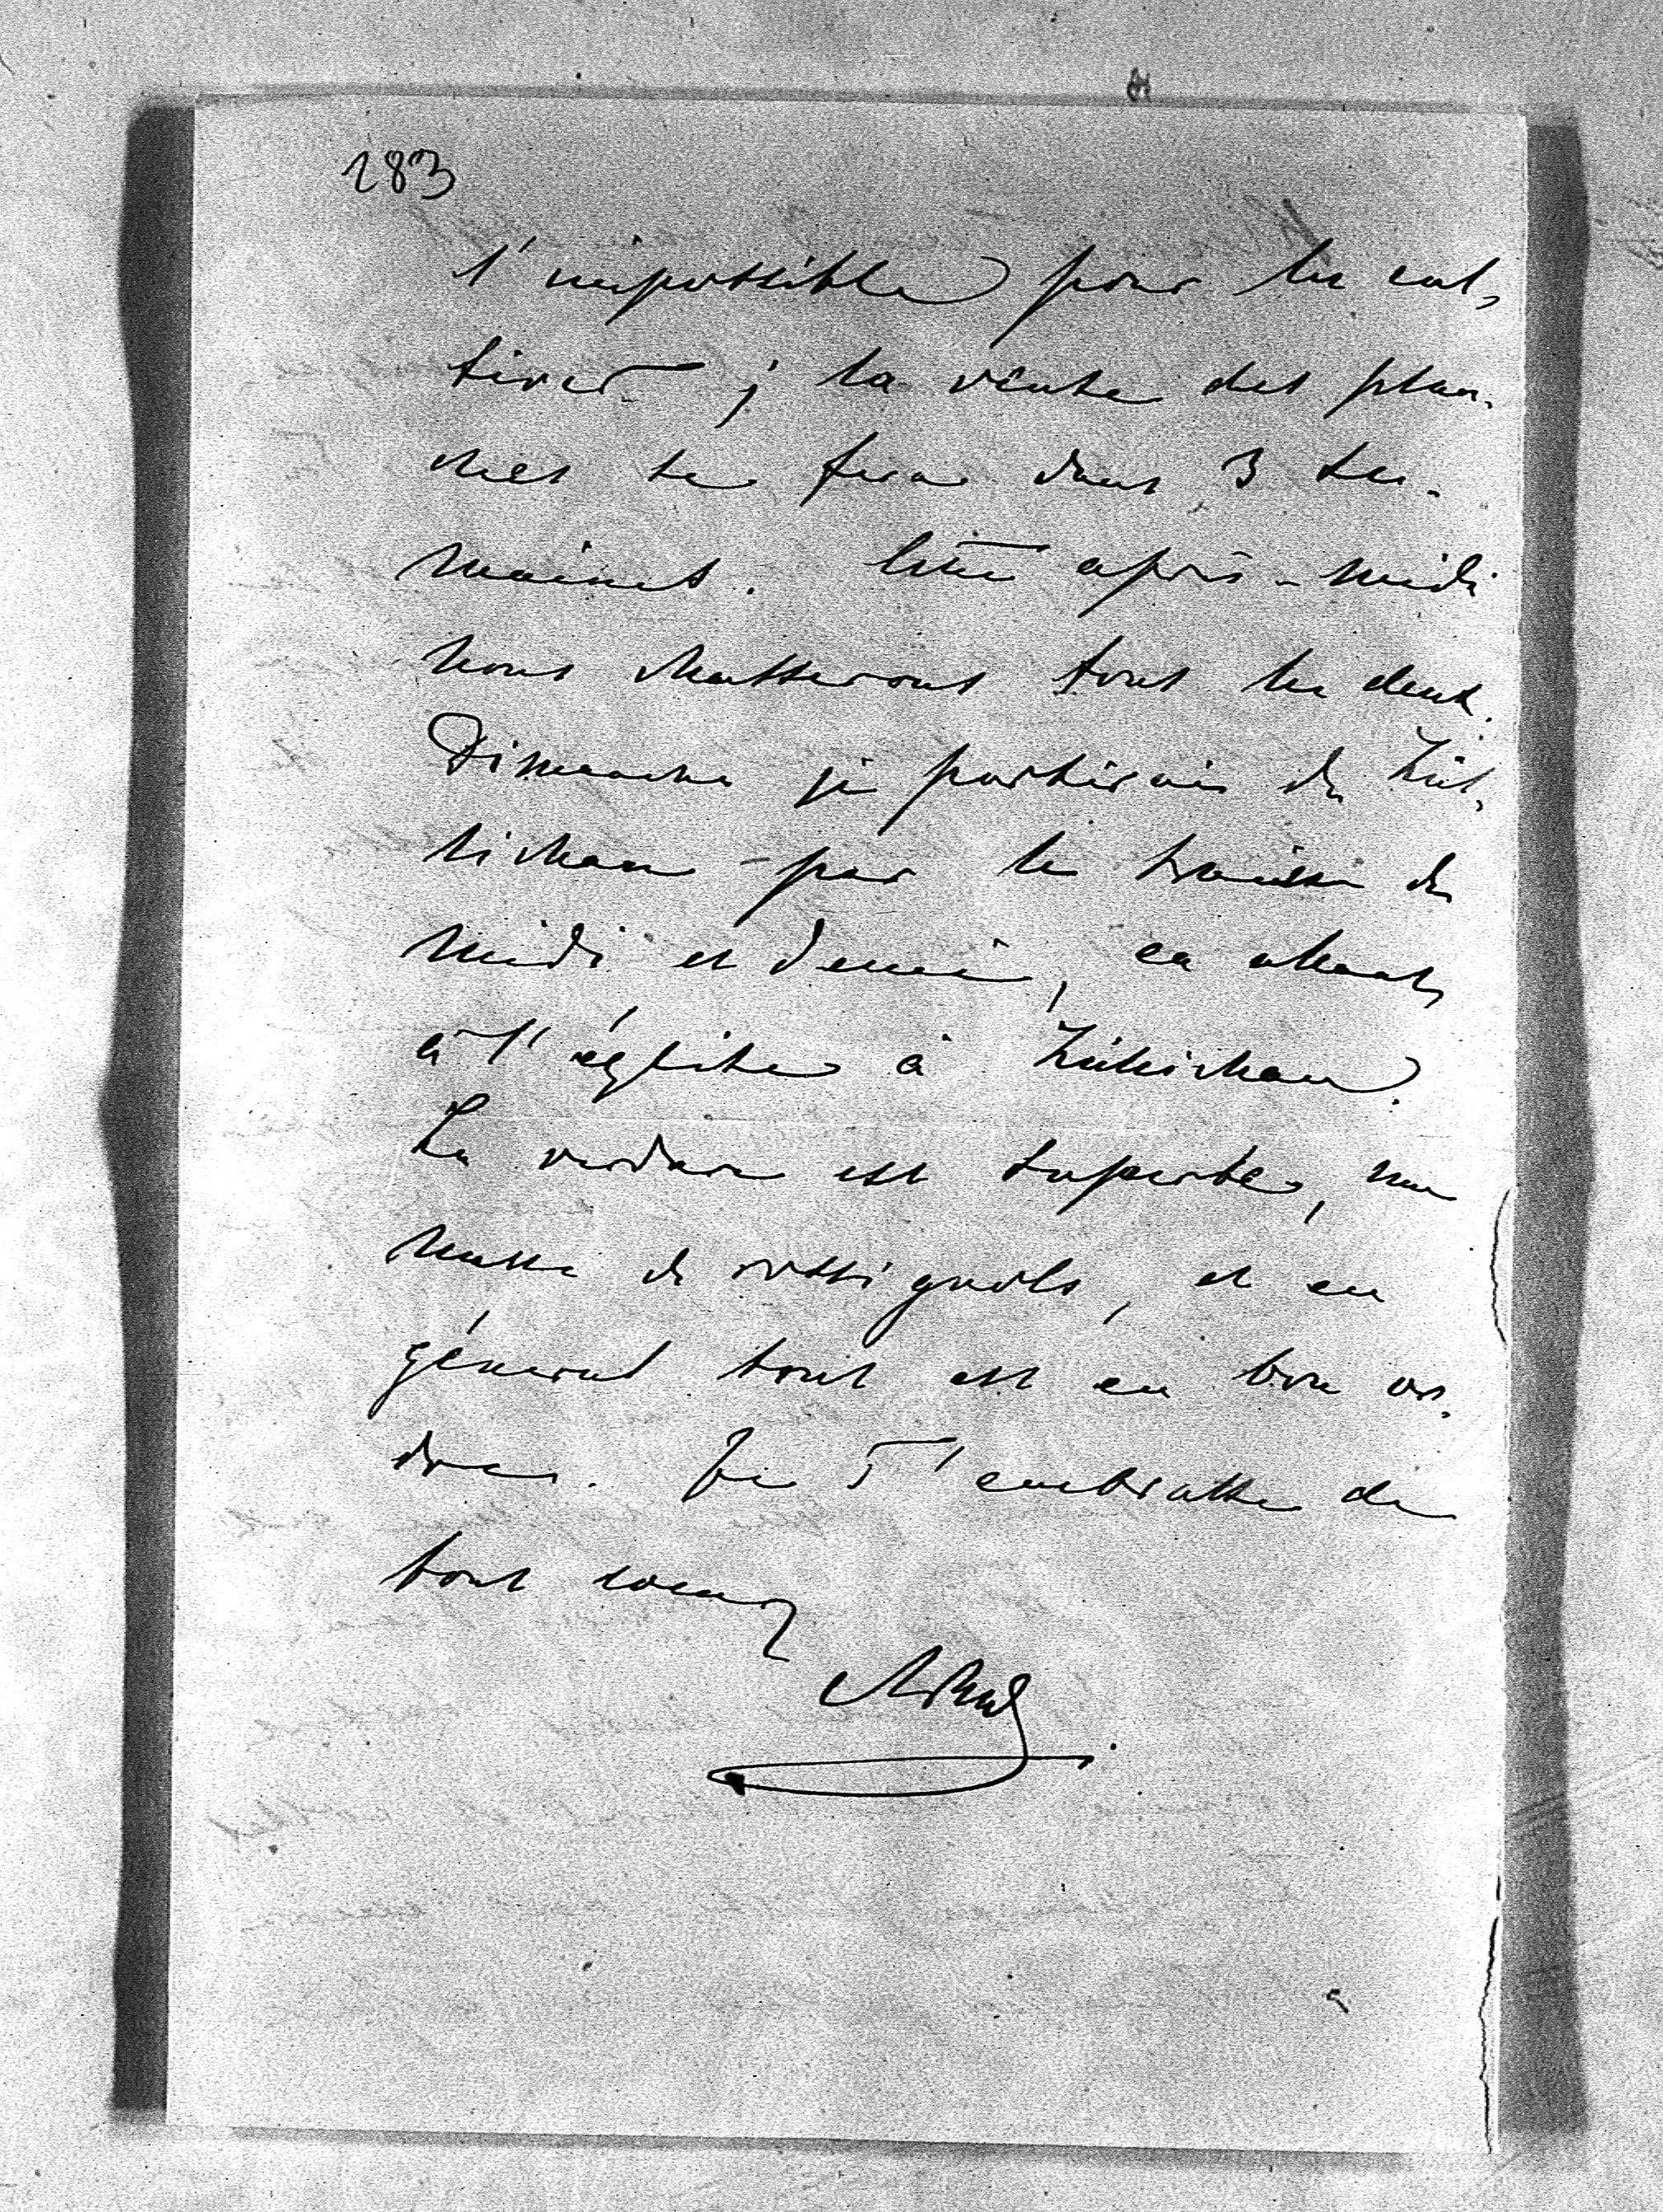 283
l'impossible pour les cul-
tiver; la vente des plan-
ches se fera dans 3 se-
maines. Cette après-midi
nous chasserons tous les deux.
Dimanche je partirai de Zül-
lichau par le train de
midi et demi, en allant
à l'église à Züllichau.
La verdure est superbe, une
masse de rossignols, et en
général tout est en bon or-
dre. Je T'embrasse de
tout coeur